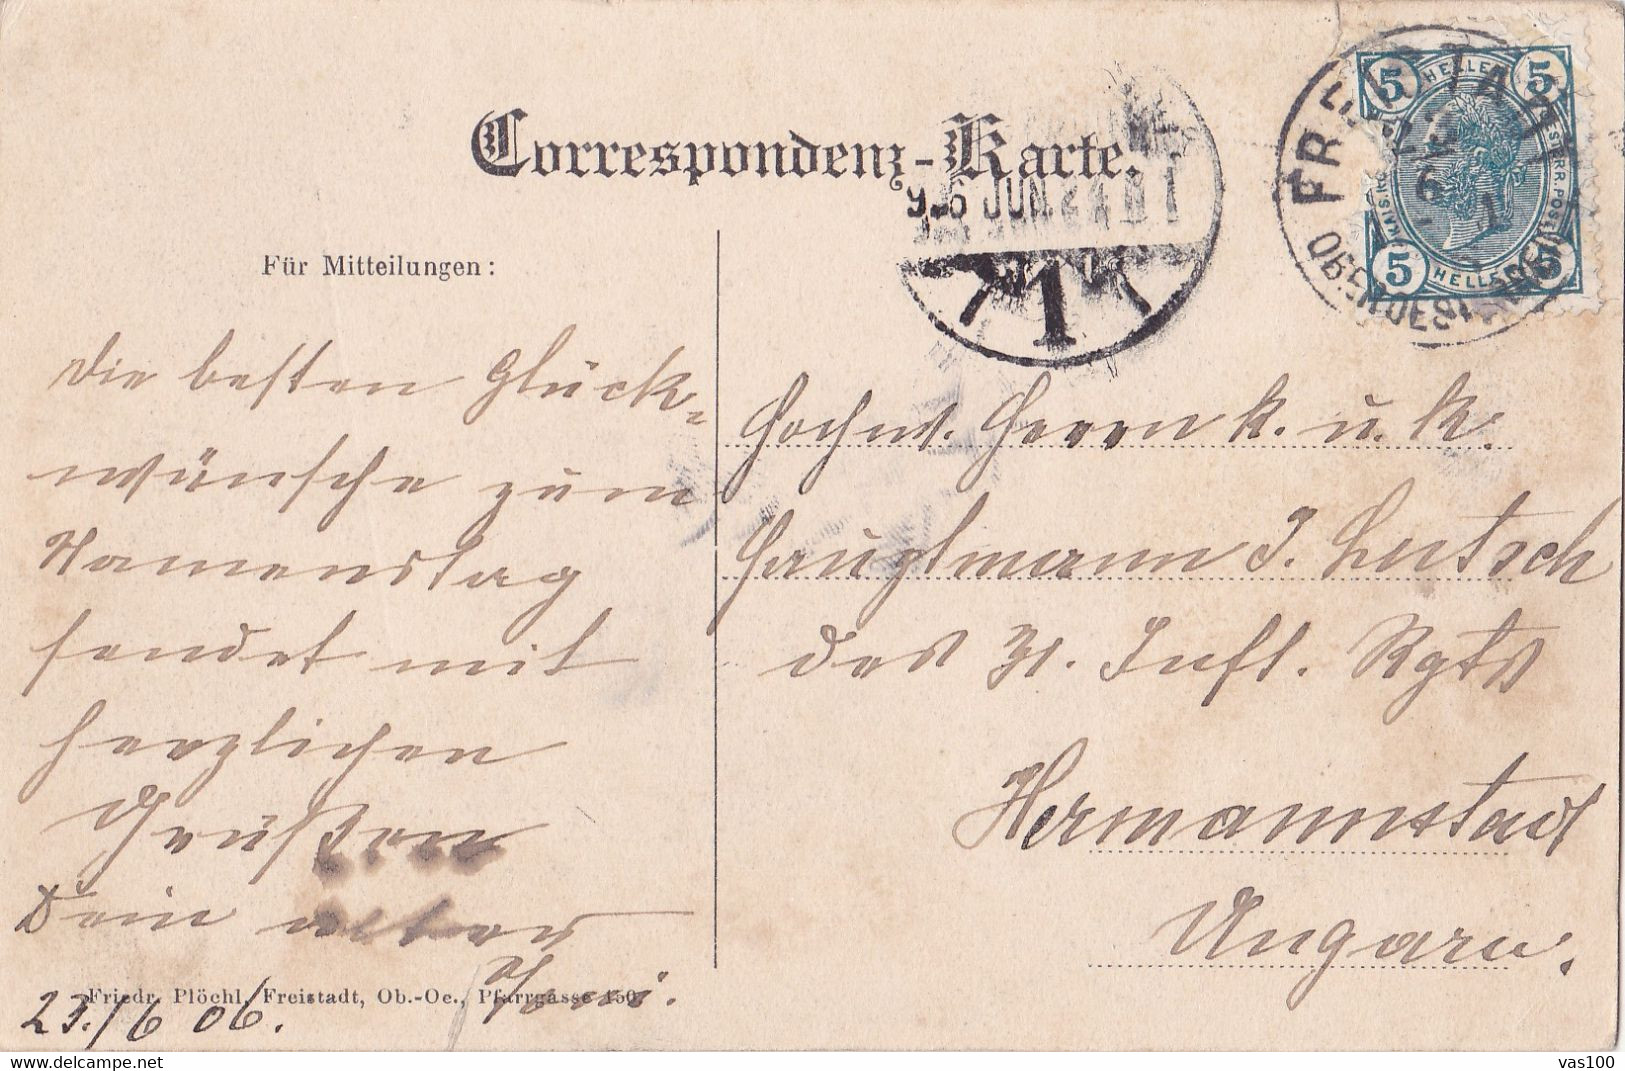 Correspondenz-Karte.
5 HELLER 5
KAIS. KÖ
ÖSTERR. POST
5 HELLER 5
FREISTADT
OBEROESTERREICH
906 JUN. 24
1
Für Mitteilungen:
Die besten Glück-
wünsche zum
Namenstag
sendet mit
herzlichen
Grüßen
Dein alter
23./6 06.
Friedr. Plöchl, Freistadt, Ob.-Oe., Pfarrgasse 150.
Hochw. Herrn k. u. k.
Hauptmann J. Lutsch
des 31. Inft. Rgts
Hermannstadt
Ungarn.
vas100